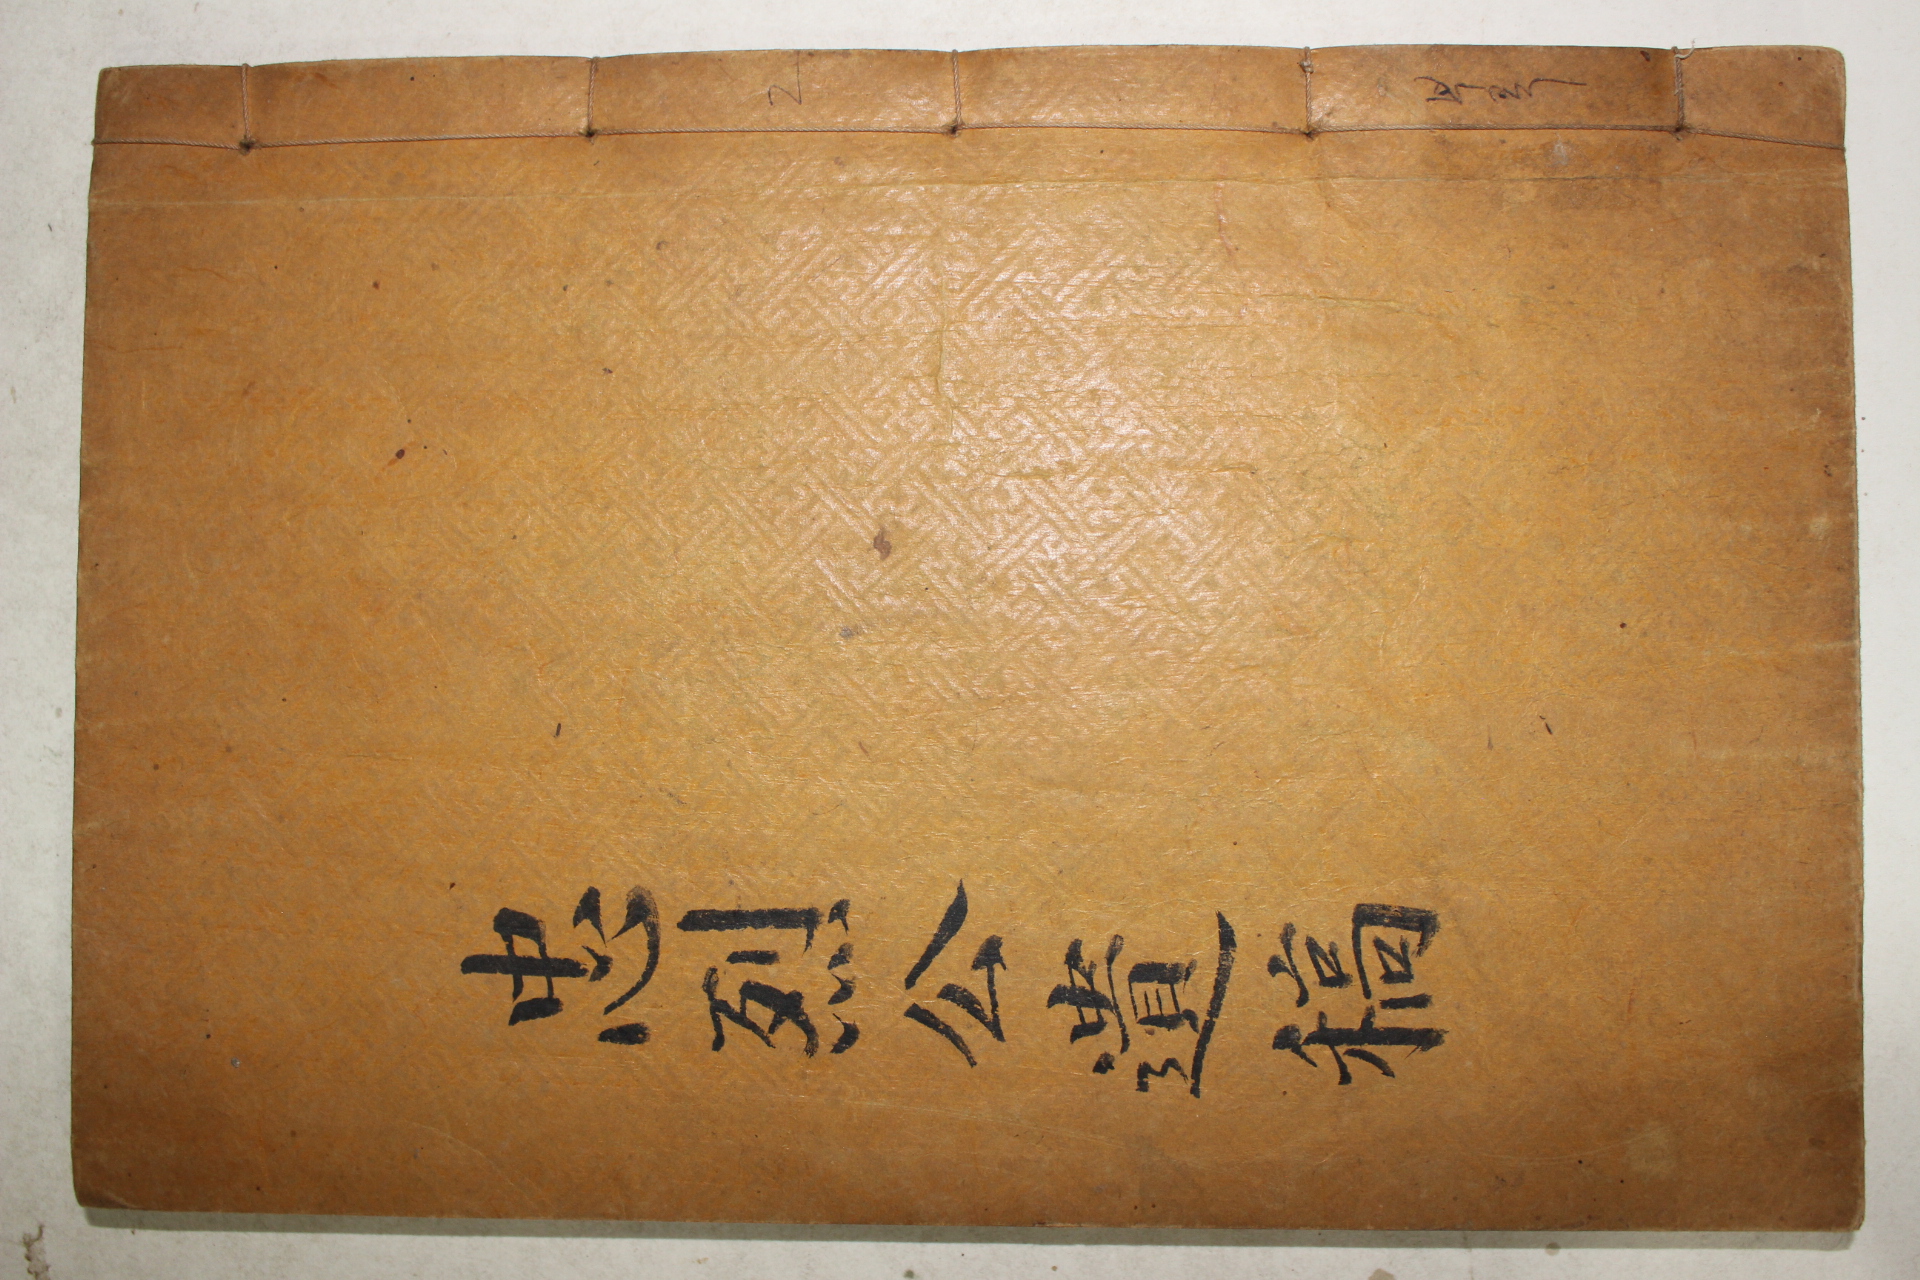 忠烈公遺稿